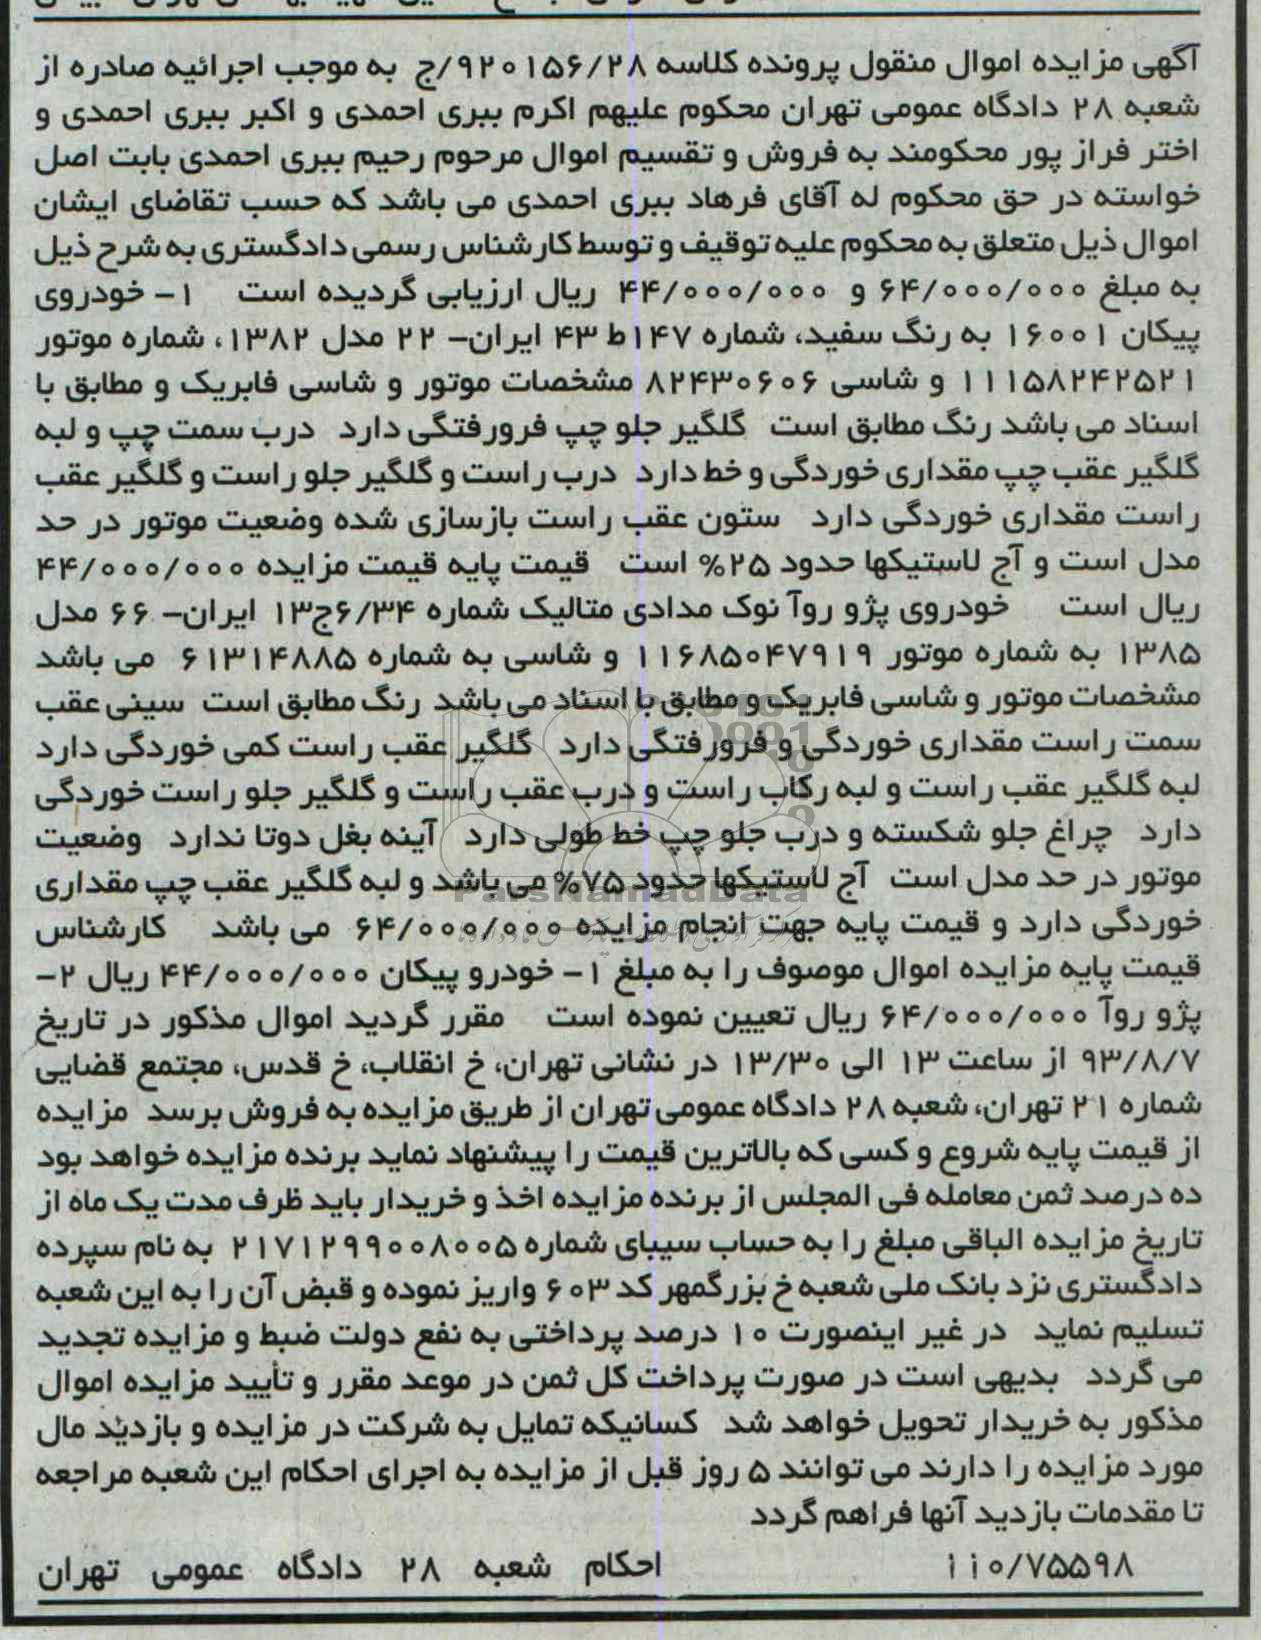 آگهی مزایده اموال منقول پرونده کلاسه ۹۲۰۱۵۶/۲۸/ج به موجب اجرائیه صادره از
شعبه ۲۸ دادگاه عمومی تهران محکوم علیهم اکرم ببری احمدی و اکبر ببری احمدی و
اختر فراز پور محکومند به فروش و تقسیم اموال مرحوم رحیم ببری احمدی بابت اصل
خواسته در حق محکوم له آقای فرهاد ببری احمدی می باشد که حسب تقاضای ایشان
اموال ذیل متعلق به محکوم علیه توقیف و توسط کارشناس رسمی دادگستری به شرح ذیل
به مبلغ ۶۴/۰۰۰/۰۰۰ و ۴۴/۰۰۰/۰۰۰ ریال ارزیابی گردیده است ۱- خودروی
پیکان ۱۶۰۰۱ به رنگ سفید، شماره ۱۴۷ط۴۳ ایران- ۲۲ مدل ۱۳۸۲، شماره موتور
۱۱۱۵۸۲۴۲۵۲۱ و شاسی ۸۲۴۳۰۶۰۶ مشخصات موتور و شاسی فابریک و مطابق با
اسناد می باشد رنگ مطابق است گلگیر جلو چپ فرورفتگی دارد درب سمت چپ و لبه
گلگیر عقب چپ مقداری خوردگی و خط دارد درب راست و گلگیر جلو راست و گلگیر عقب
راست مقداری خوردگی دارد ستون عقب راست بازسازی شده وضعیت موتور در حد
مدل است و آج لاستیکها حدود ۲۵% است قیمت پایه قیمت مزایده ۴۴/۰۰۰/۰۰۰
ریال است خودروی پژو روآ نوک مدادی متالیک شماره ۶/۳۴ج۱۳ ایران- ۶۶ مدل
۱۳۸۵ به شماره موتور ۱۱۶۸۵۰۴۷۹۱۹ و شاسی به شماره ۶۱۳۱۴۸۸۵ می باشد
مشخصات موتور و شاسی فابریک و مطابق با اسناد می باشد رنگ مطابق است سینی عقب
سمت راست مقداری خوردگی و فرورفتگی دارد گلگیر عقب راست کمی خوردگی دارد
لبه گلگیر عقب راست و لبه رکاب راست و درب عقب راست و گلگیر جلو راست خوردگی
دارد چراغ جلو شکسته و درب جلو چپ خط طولی دارد آینه بغل دوتا ندارد وضعیت
موتور در حد مدل است آج لاستیکها حدود ۷۵% می باشد و لبه گلگیر عقب چپ مقداری
ParsNamadData
خوردگی دارد و قیمت پایه جهت انجام مزایده ۶۴/۰۰۰/۰۰۰ می باشد کارشناس
قیمت پایه مزایده اموال موصوف را به مبلغ ۱- خودرو پیکان ۴۴/۰۰۰/۰۰۰ ریال ۲-
پژو روآ ۶۴/۰۰۰/۰۰۰ ریال تعیین نموده است مقرر گردید اموال مذکور در تاریخ
۹۳/۸/۷ از ساعت ۱۳ الی ۱۳/۳۰ در نشانی تهران، خ انقلاب، خ قدس، مجتمع قضایی
شماره ۲۱ تهران، شعبه ۲۸ دادگاه عمومی تهران از طریق مزایده به فروش برسد مزایده
از قیمت پایه شروع و کسی که بالاترین قیمت را پیشنهاد نماید برنده مزایده خواهد بود
ده درصد ثمن معامله فی المجلس از برنده مزایده اخذ و خریدار باید ظرف مدت یک ماه از
تاریخ مزایده الباقی مبلغ را به حساب سیبای شماره ۲۱۷۱۲۹۹۰۰۸۰۰۵ به نام سپرده
دادگستری نزد بانک ملی شعبه خ بزرگمهر کد ۶۰۳ واریز نموده و قبض آن را به این شعبه
تسلیم نماید در غیر اینصورت ۱۰ درصد پرداختی به نفع دولت ضبط و مزایده تجدید
می گردد بدیهی است در صورت پرداخت کل ثمن در موعد مقرر و تأیید مزایده اموال
مذکور به خریدار تحویل خواهد شد کسانیکه تمایل به شرکت در مزایده و بازدید مال
مورد مزایده را دارند می توانند ۵ روز قبل از مزایده به اجرای احکام این شعبه مراجعه
تا مقدمات بازدید آنها فراهم گردد
۱۱۰/۷۵۵۹۸ احکام شعبه ۲۸ دادگاه عمومی تهران